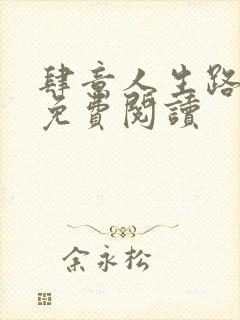 肆意人生路
免費閱讀
余永松